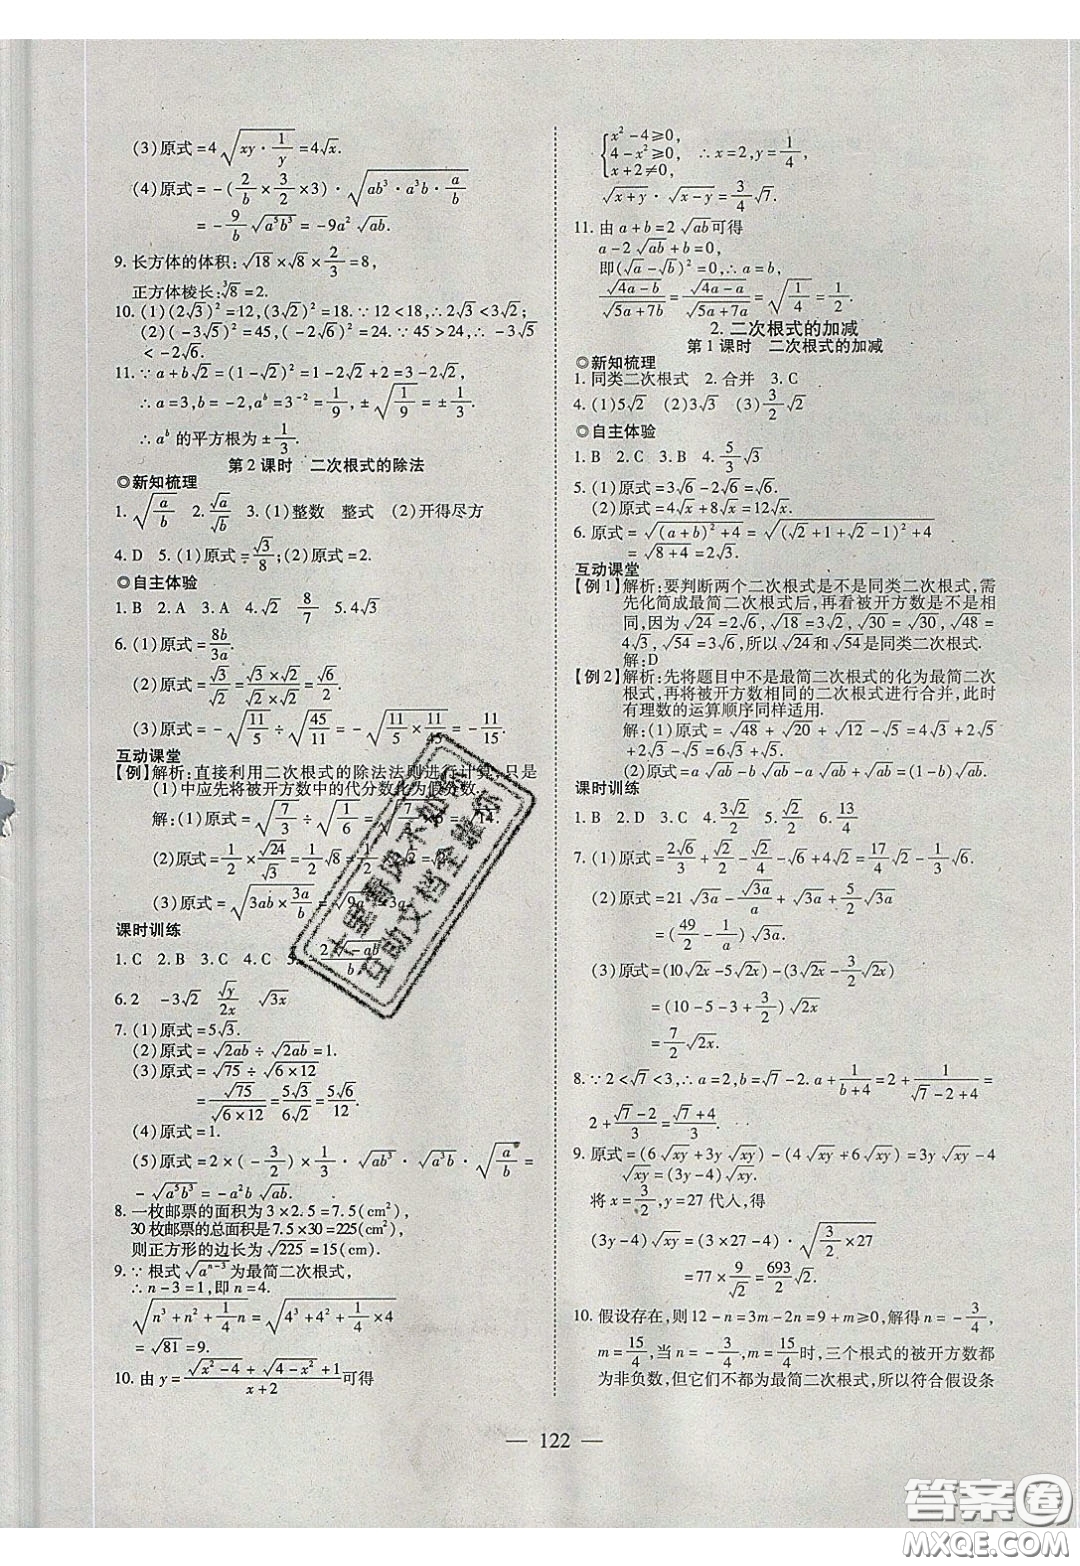 (3)原式=4√(xy·1/y)=4√x.
(4)原式=-(2/b×3/2×3)·√(ab³·a³b·a/b)
=-9/b√(a⁵b³)=-9a²√ab.
9. 长方体的体积:√18×√8×2/3=8,
正方体棱长:³√8=2.
10. (1)(2√3)²=12,(3√2)²=18.∵12<18,∴2√3<3√2;
(2)(-3√5)²=45,(-2√6)²=24.∵45>24,∴-3√5
<-2√6.
11. ∵a+b√2=(1-√2)²=1-2√2+2=3-2√2,
∴a=3,b=-2,aᵇ=3⁻²=1/9,±√(1/9)=±1/3.
∴aᵇ的平方根为±1/3.
第2课时 二次根式的除法
◎新知梳理
1. √(a/b) 2. √a/√b 3. (1)整数 整式 (2)开得尽方
4. D 5. (1)原式=√3/8;(2)原式=2.
◎自主体验
1. B 2. A 3. A 4. √2 8/7 5. 4√3
6. (1)原式=8b/3a.
(2)原式=√3/√2=(√3×√2)/(√2×√2)=√6/2.
(3)原式=-√(11/5)÷√(45/11)=-√(11/5×11/45)=-11/15.
互动课堂
【例】解析:直接利用二次根式的除法法则进行计算,只是
(1)中应先将被开方数中的代分数化为假分数.
解:(1)原式=√(7/3)÷√(1/6)=√(7/3×6)=√14.
(2)原式=1/2×√24/√3=1/2√8=1/2×2√2=√2.
(3)原式=√(3ab×3a/b)=√9a
课时训练
1. C 2. B 3. C 4. C 5. 2√-ab/b
6. 2 -3√2 √y/2x √3x
7. (1)原式=5√3.
(2)原式=√2ab÷√2ab=1.
(3)原式=√75÷√(6×12)
=√75/√(6×12)=5√3/6√2=5√6/12.
(4)原式=1.
(5)原式=2×(-3/2)×1/3·√ab³·√a³b·√(a/b)=
-√(a⁵b³/b)=-a²b√a.
8. 一枚邮票的面积为3×2.5=7.5(cm²),
30枚邮票的总面积是7.5×30=225(cm²),
则正方形的边长为√225=15(cm).
9. ∵根式√aⁿ⁻³为最简二次根式,
∴n-3=1,即n=4.
√(n³+n²+1/4n)=√(4³+4²+1/4×4)
=√81=9.
10. 由y=(√(x²-4)+√(4-x²)+1)/(x+2)可得
{x²-4≥0,
4-x²≥0, ∴x=2,y=1/4,
x+2≠0,
√(x+y)·√(x-y)=3/4√7.
11. 由a+b=2√ab可得
a-2√ab+b=0,
即(√a-√b)²=0,∴a=b,
√(4a-b)/√(5a+7b)=√(4a-a)/√(5a+7a)=√(1/4)=1/2.
2. 二次根式的加减
第1课时 二次根式的加减
◎新知梳理
1. 同类二次根式 2. 合并 3. C
4. (1)5√2 (2)3√3 (3)3/2√2
◎自主体验
1. B 2. C 3. B 4. 5/3√3
5. (1)原式=3√6-2√6=√6.
(2)原式=4√x+8√x=12√x.
6. 原式=√((a+b)²+4)=√((√2+1+√2-1)²+4
=√(8+4)=2√3.
互动课堂
【例1】解析:要判断两个二次根式是不是同类二次根式,需
先化简成最简二次根式后,再看被开方数是不是相
同,因为√24=2√6,√18=3√2,√30=√30,√48=
4√3,√54=3√6,所以√24和√54是同类二次根式.
解:D
【例2】解析:先将题目中不是最简二次根式的化为最简二次
根式,再将被开方数相同的二次根式进行合并,此时
有理数的运算顺序同样适用.
解:(1)原式=√48+√20+√12-√5=4√3+2√5
+2√3-√5=6√3+√5.
(2)原式=a√ab-√ab-ab√ab+√ab=(1-b)√ab.
课时训练
1. B 2. D 3. A 4. 3√2/2 5. 3√2 6. 13/4
7. (1)原式=2√6/3+√2/2-√6+4√2=17/4√2-1/3√6.
(2)原式=21√3a-√3a/a+√3a+5/2√3a=
(49/2-1/a)√3a.
(3)原式=(10√2x-5√2x)-(3√2x-3/2√2x)
=(10-5-3+3/2)×√2x
=7/2√2x.
8. ∵2<√7<3,∴a=2,b=√7-2.a+1/(b+4)=2+1/(√7-2+4)=
2+(√7-2)/3=(√7+4)/3.
9. 原式=(6√xy+3y√xy)-(4√xy+6√xy)=3y√xy-4
√xy=(3y-4)√xy.
将x=3/2,y=27代人,得
(3y-4)√xy=(3×27-4)·√(3/2×27)
=77×9/√2=693/2√2.
10. 假设存在,则12-n=3m-2n=9+m≥0,解得n=-3/4,
m=15/4,当n=-3/4,m=15/4时,三个根式的被开方数都
为非负数,但它们不都为最简二次根式,所以符合假设条
— 122 —
答案圈
MXQE.COM